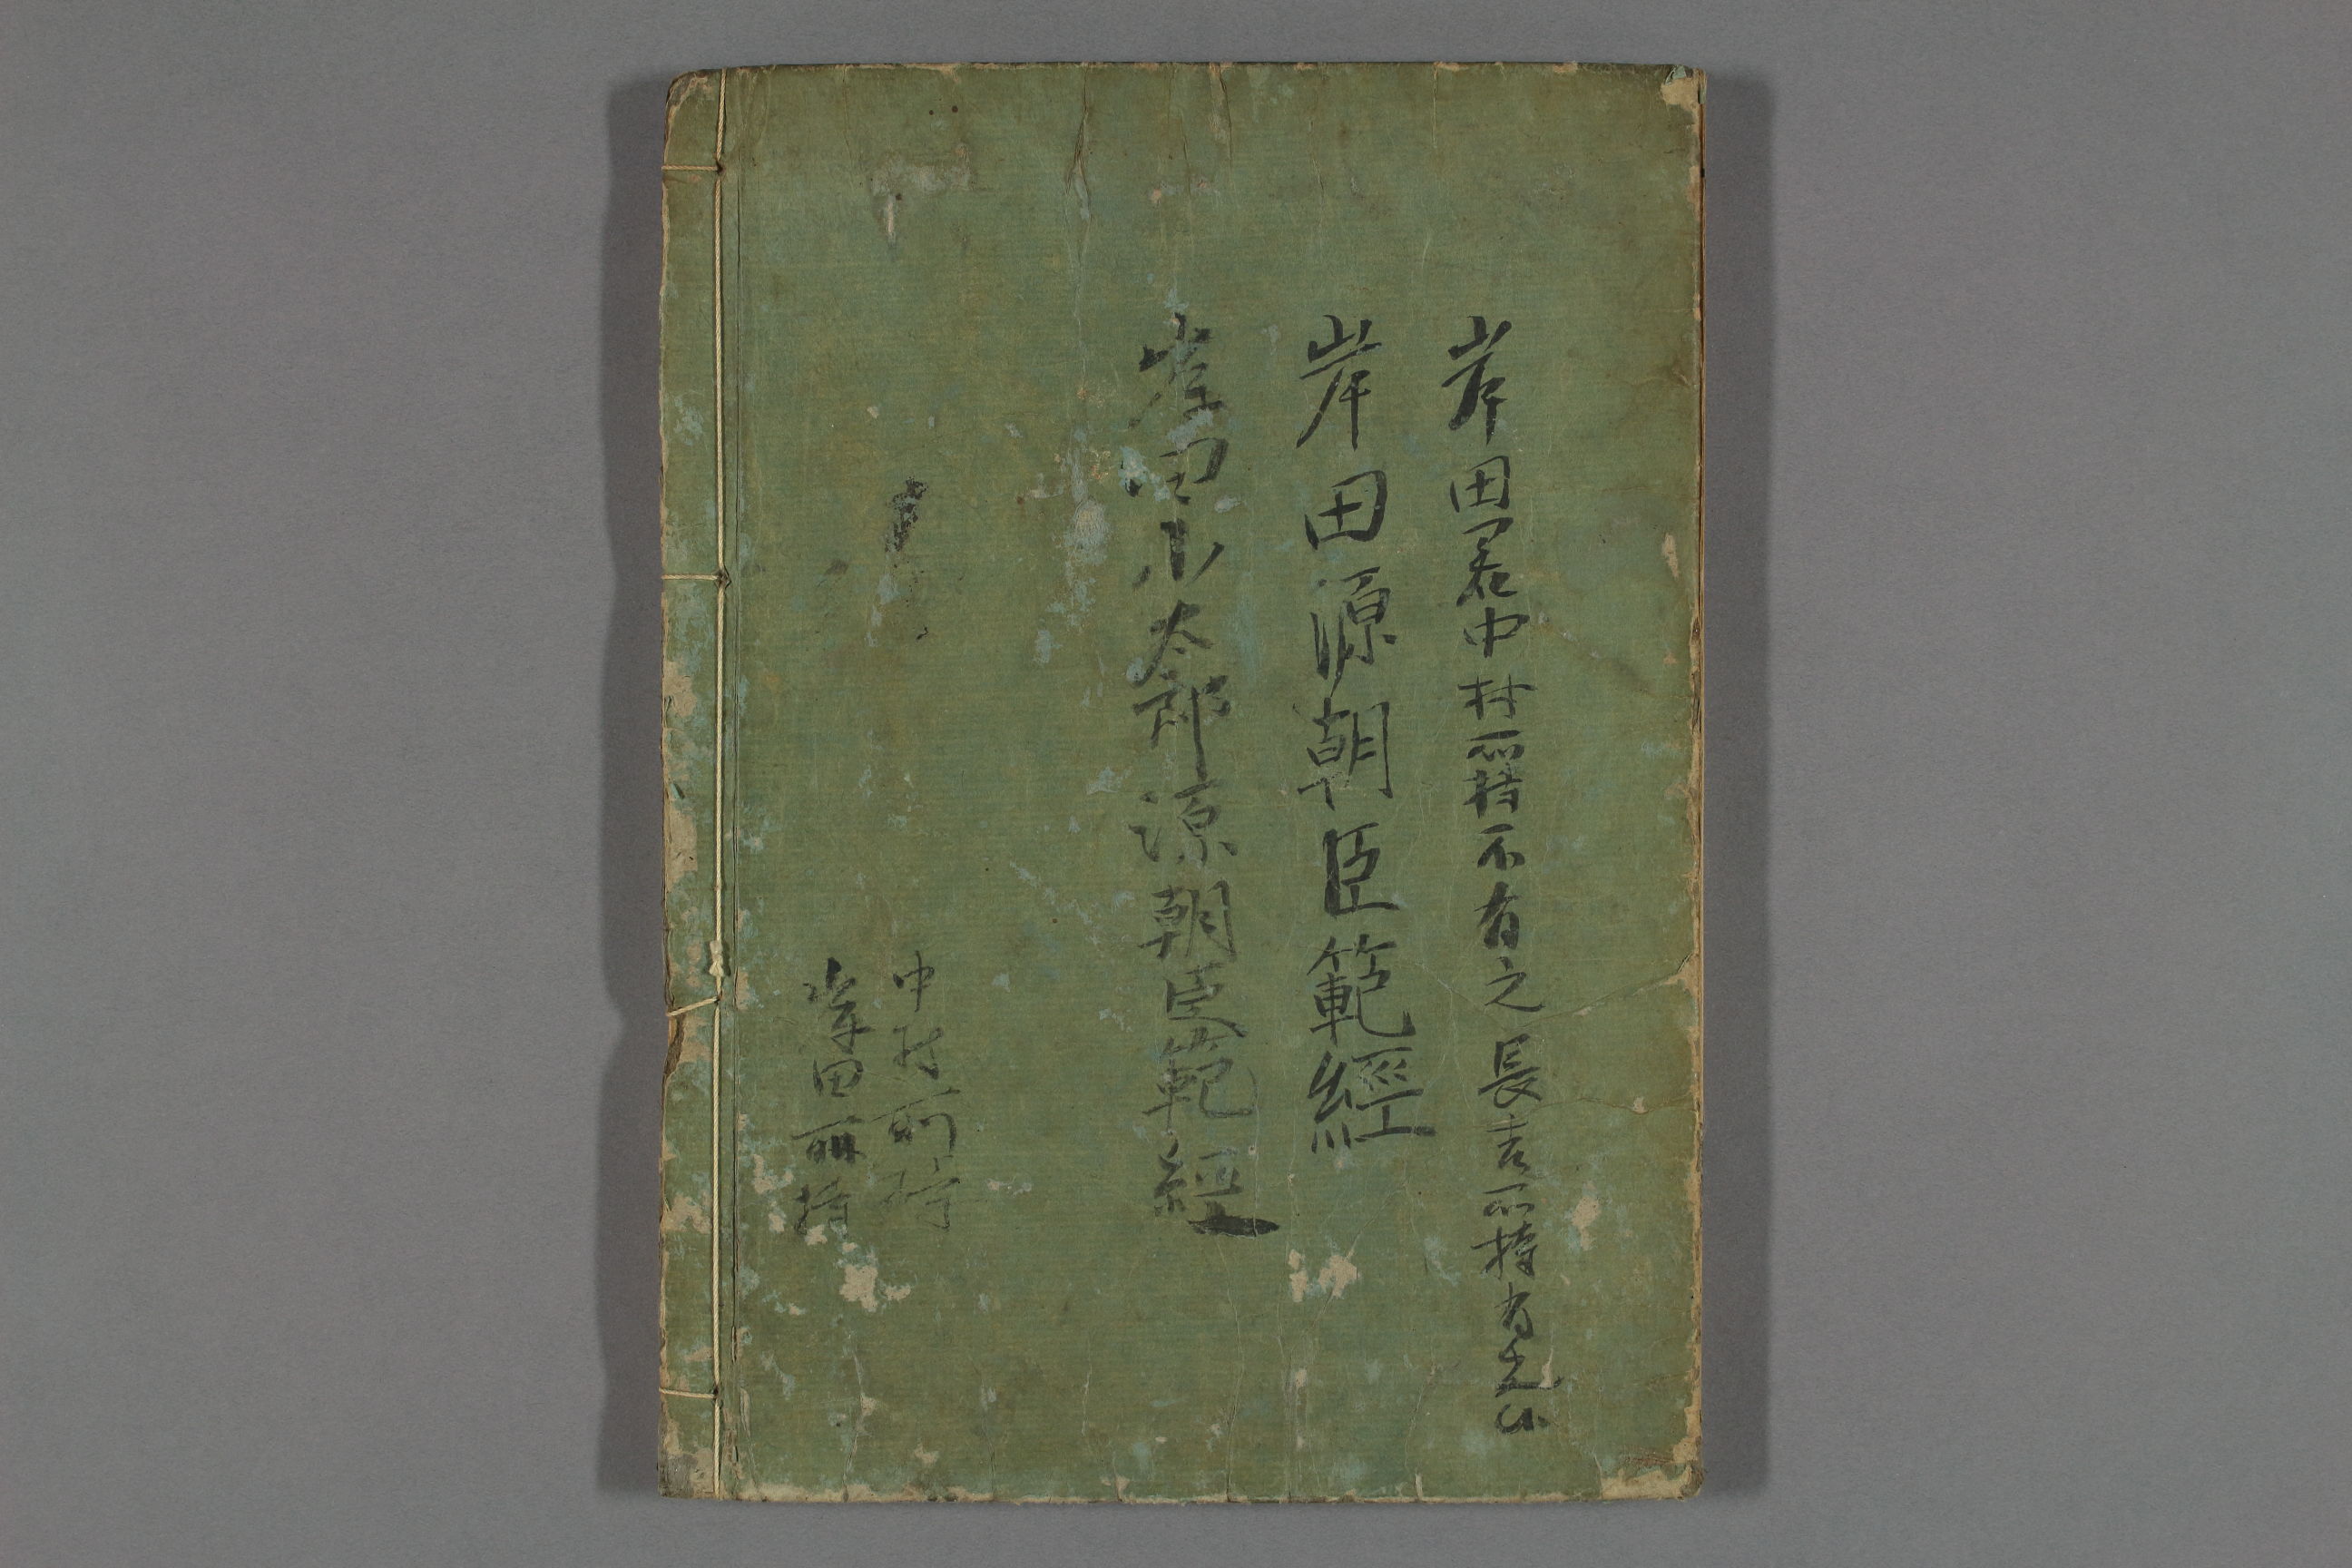 岸田君中村所持不有之長吉所持有之
岸田源朝臣範經
岸田小太郎源朝臣範經
中村所持
岸田所持